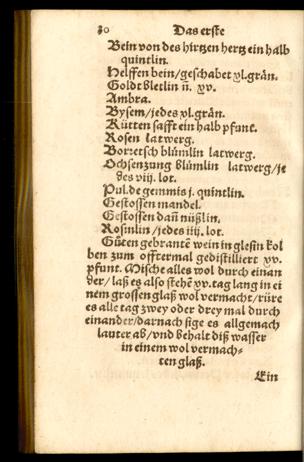 30 Das erste
Bein von des hirtzen hertz ein halb
quintlin.
Helffen bein/geschabet xl.grän.
Goldtbletlin ii. xv.
Ambra.
Bysem/jedes xl.grän.
Kütten safft ein halb pfunt.
Rosen latwerg.
Borretsch blümlin latwerg.
Ochsenzung blümlin latwerg/je
des viij. lot.
Pul.de gemmis j. quintlin.
Gestossen mandel.
Gestossen dañ nüßlin.
Rosinlin/jedes iiij. lot.
Gůten gebrantē wein in glesin kol
ben zum offtermal gedistilliert xv.
pfunt. Mische alles wol durch einan
der/laß es also stehē xv. tag lang in ei
nem grossen glaß wol vermacht/rüre
es alle tag zwey oder drey mal durch
einander/darnach sige es allgemach
lauter ab/vnd behalt diß wasser
in einem wol vermach-
ten glaß.
Ein